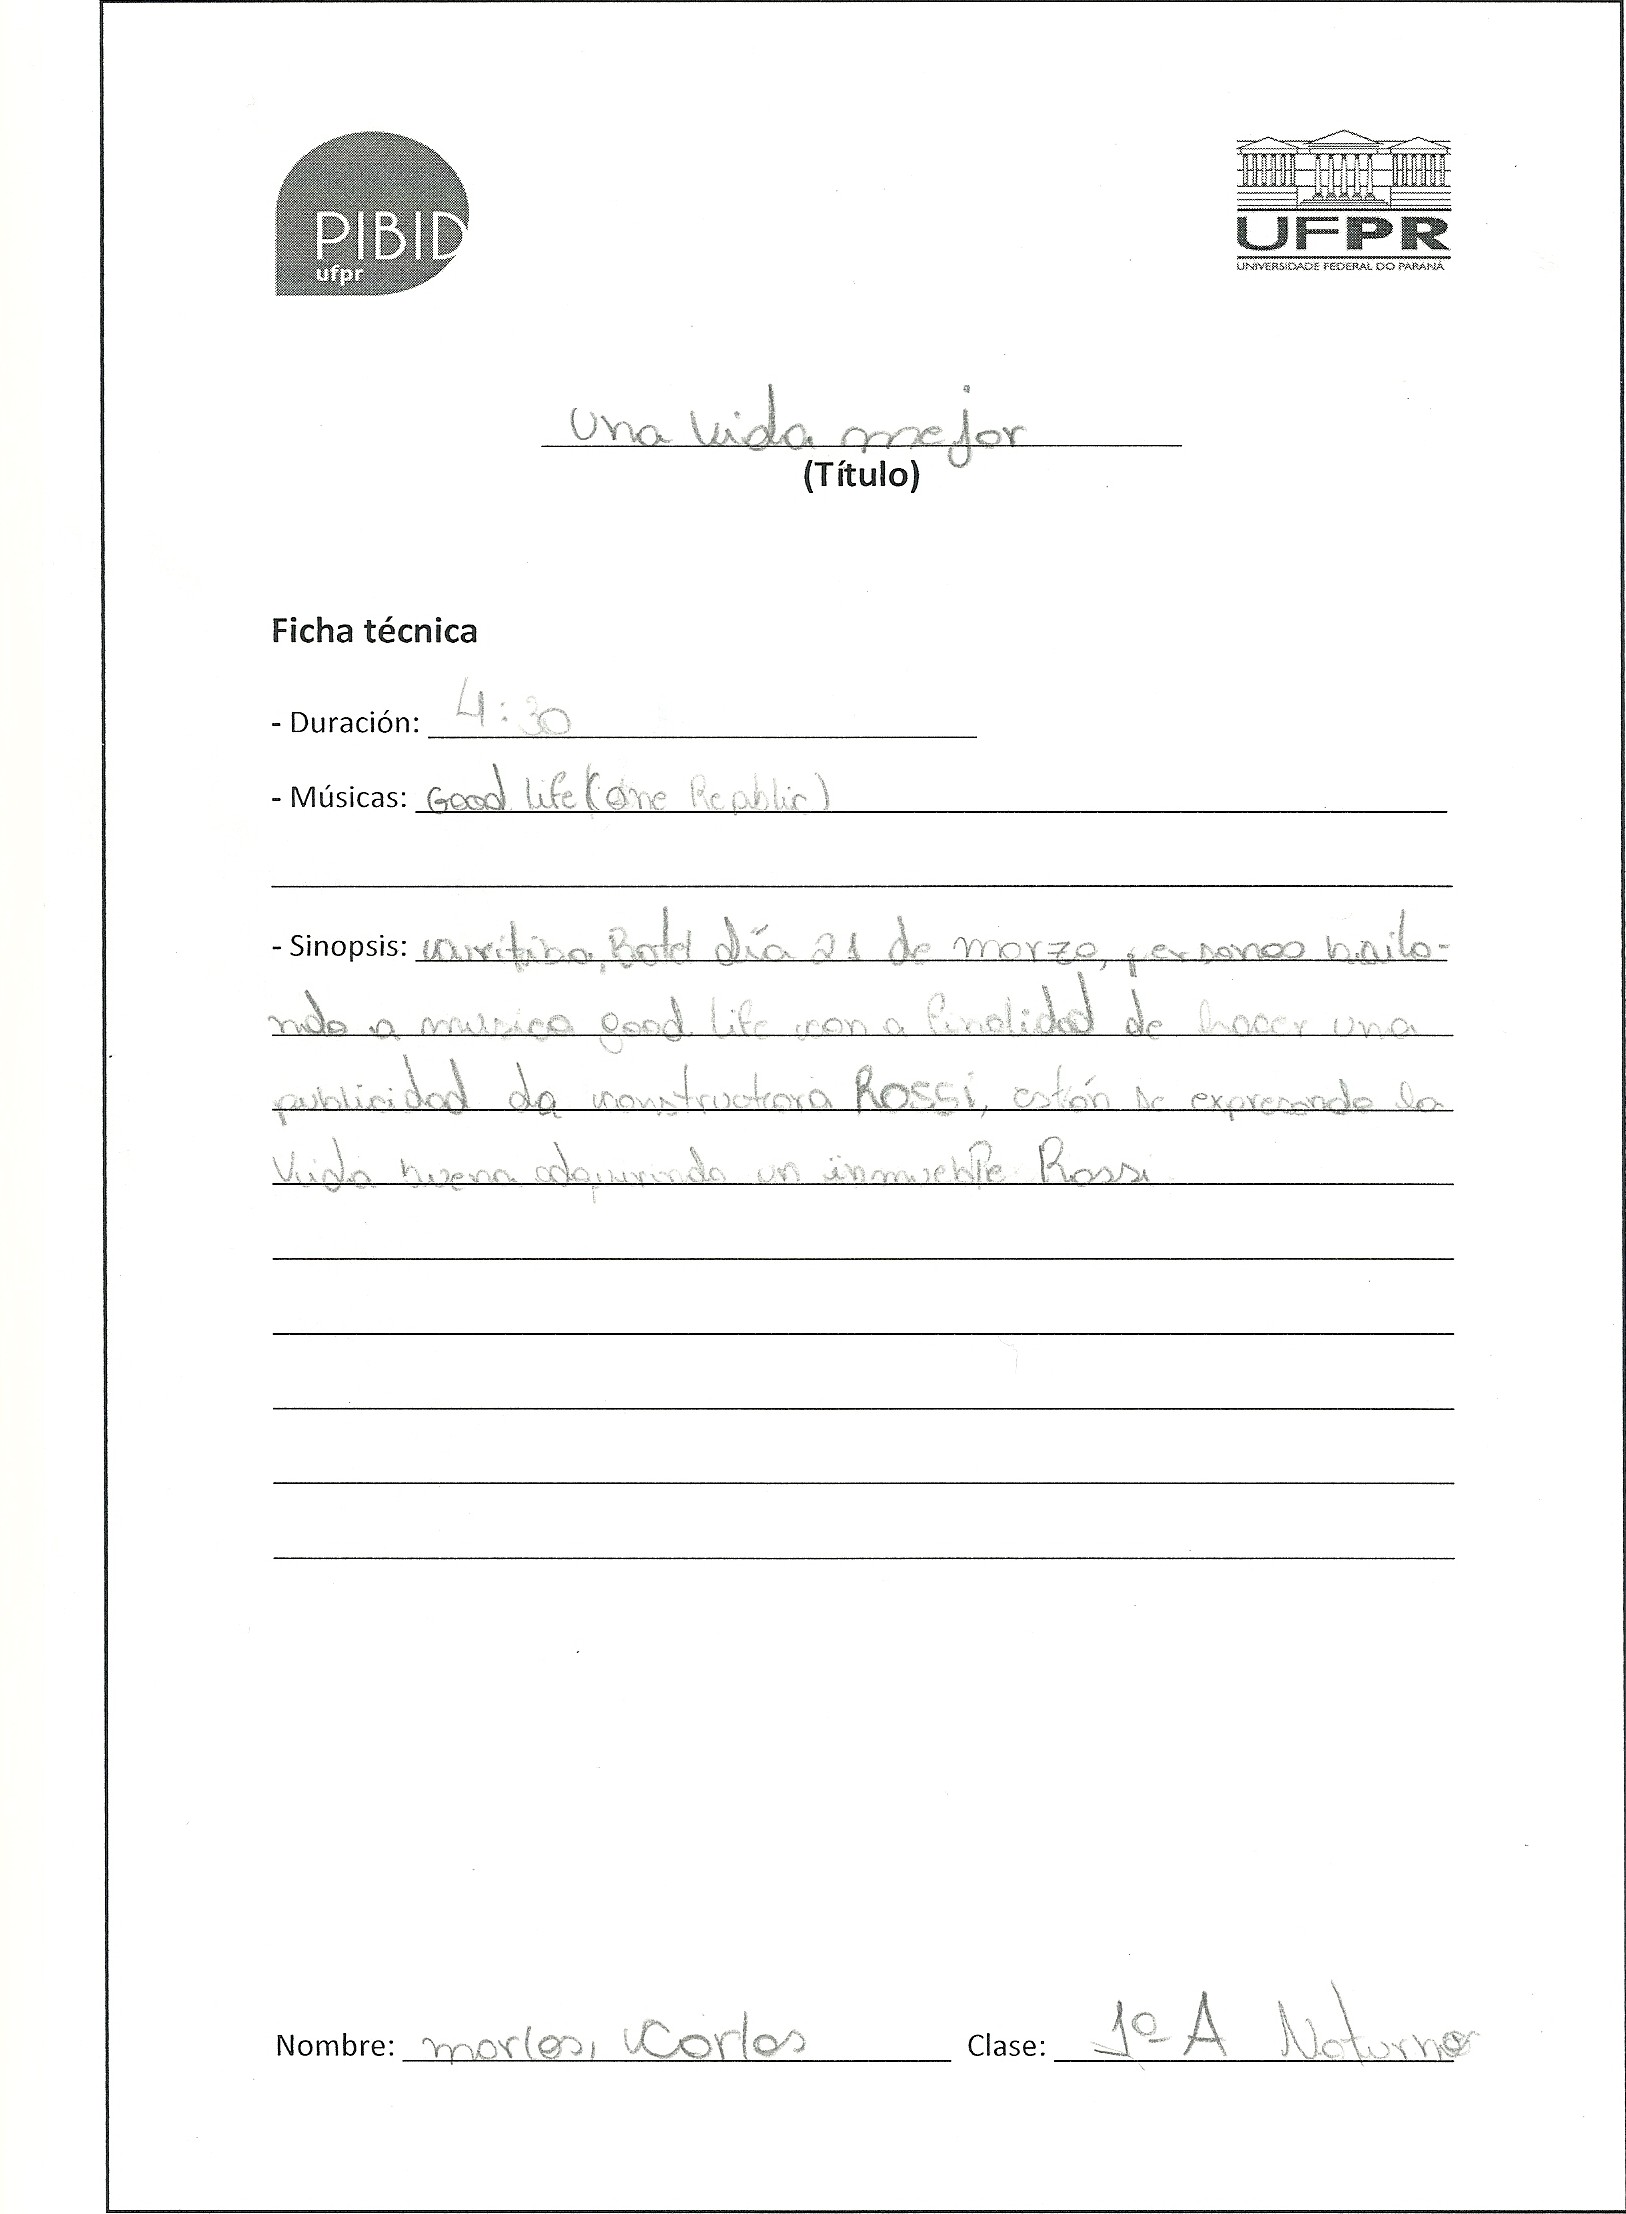 PIBID
ufpr
UFPR
UNIVERSIDADE FEDERAL DO PARANÁ
Una vida mejor
(Título)
Ficha técnica
- Duración: 4:30
- Músicas: Good life (One Republic)
- Sinopsis: Curitiba, Batel día 21 de marzo, personas baila-
ndo a musica good life con a finalidad de hacer una
publicidad da constructora Rossi, están se expresando la
vida buena adquirindo un inmueble Rossi
Nombre: Marlos, Carlos Clase: 1º A Noturno